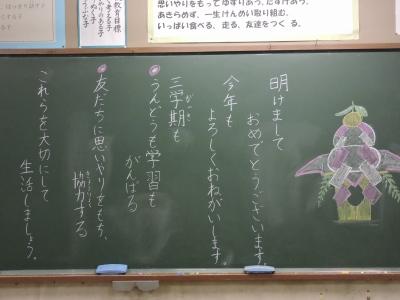 思いやりをもってゆずりあう、たすけあう。
あきらめず、一生けんめい取り組む。
いっぱい食べる、走る、友達をつくる。
教育目標
明けまして
おめでとうございます。
今年も
よろしくおねがいします。
三学期も
がっき
うんどうも学習も
がんばる
友だちに思いやりをもち、
協力する
きょうりょく
これらを大切にして
生活しましょう。